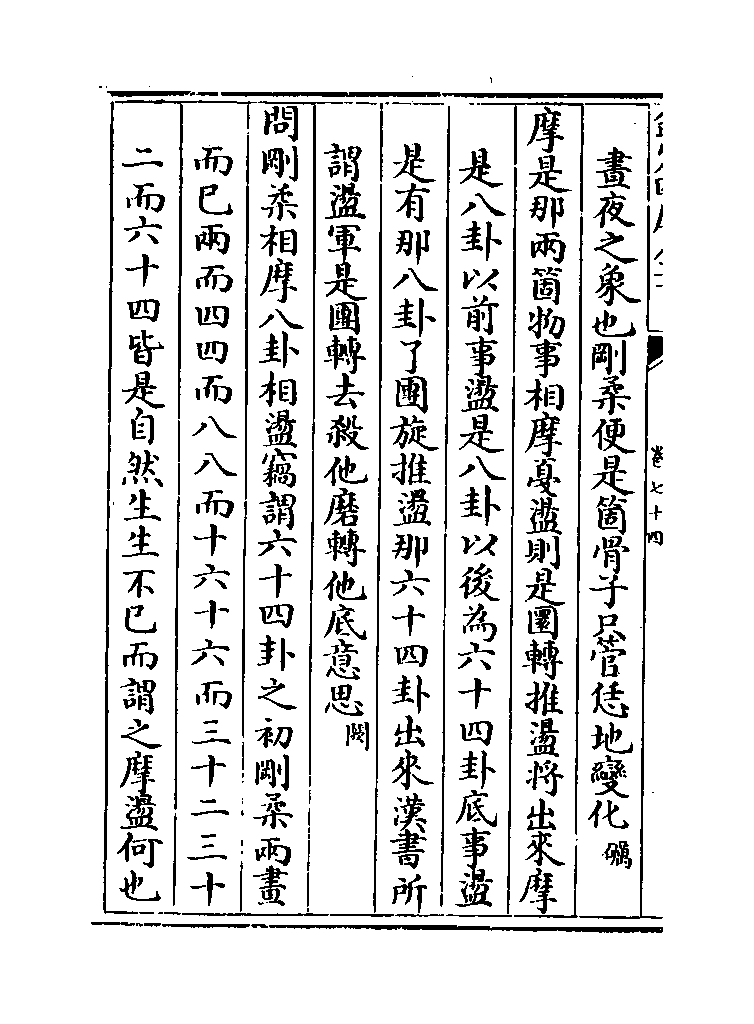 晝夜之象也剛柔便是箇骨子只管恁地變化礪
摩是那兩箇物事相摩戞盪則是圜轉推盪將出來摩
是八卦以前事盪是八卦以後為六十四卦底事盪
是有那八卦了團旋推盪那六十四卦出來漢書所
謂盪軍是團轉去殺他磨轉他底意思㽦
問剛柔相摩八卦相盪竊謂六十四卦之初剛柔兩畫
而已兩而四四而八八而十六十六而三十二三十
二而六十四皆是自然生生不已而謂之摩盪何也
卷七十四